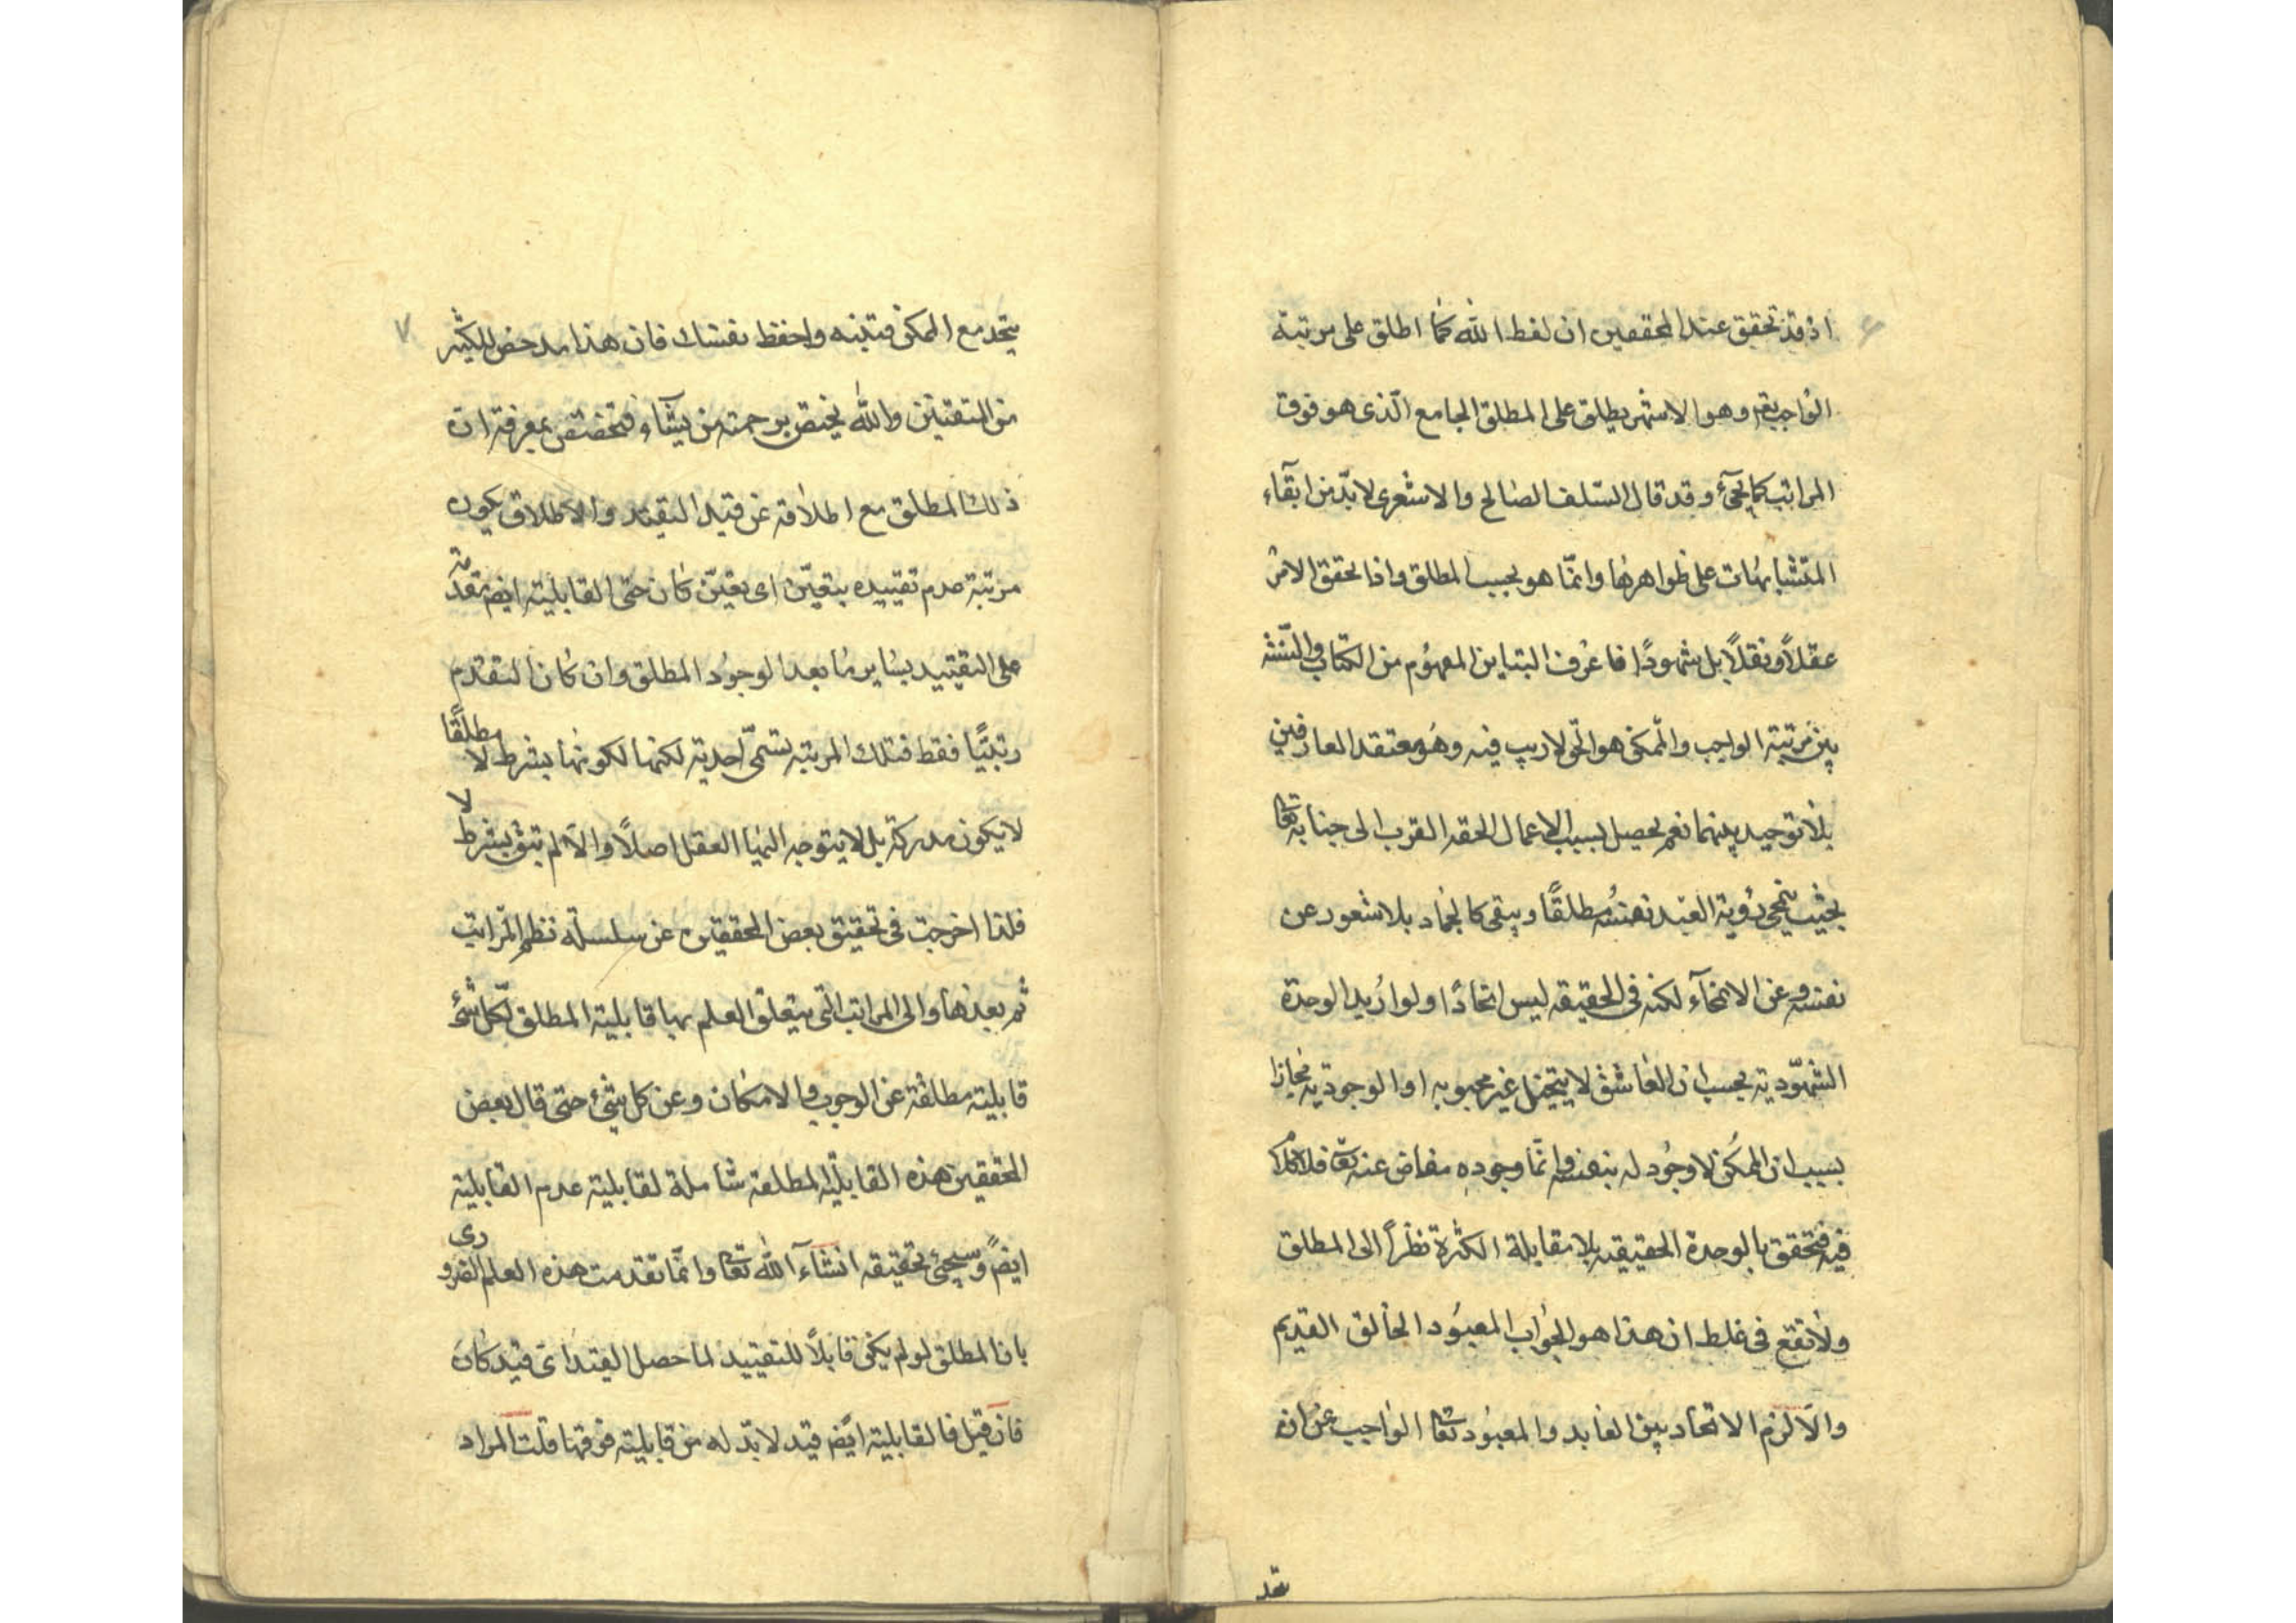 ۶
اذ قد تحقق عند المحققين ان لفظ الله كما اطلق على مرتبة
الواجب تعم وهو الاشهر يطلق على المطلق الجامع الّذى هو فوق
المراتب كما يجئ وقد قال السّلف الصالح والاشعرى لا بدّ من ابقآء
المتشابهات على ظواهرها وانمّا هو بحسب المطلق واذا تحقق الامر
عقلاً ونقلاً بل شهودًا فاعرف التباين المفهوم من الكتاب والسّنة
بين مرتبة الواجب والممكن هو الحق لا ريب فيه وهو معتقد العارفين
بلا توحيد بينهما نعم يحصل بسبب الاعمال الحقه القرب الى جنابه تعا
بحيث ينمحى رؤية العبد نفسه مطلقًا ويبقى كالجماد بلا شعور عن
نفسه وعن الانمحآء لكنه فى الحقيقه ليس اتحادًا ولو اريد الوحدة
الشهّودية بحسب ان العاشق لا يتخيل غير محبوبه او الوجودية مجازا
بسبب ان الممكن لا وجود له بنفسه وانمّا وجوده مفاض عنه تعا فلا كلام
فيه فتحقق بالوحدة الحقيقيه بلا مقابلة الكثرة نظراً الى المطلق
ولا تقع فى غلط ان هذا هو المعبود الخالق القديم
والّا لزم الاتحاد بين العابد والمعبود تعا الواجب عن ان
تحد
٧
يتحد مع الممكن فتنبه واحفظ نفسك فان هذا مدحض للكثير
من المتقين والله يختص برحمته من يشآء فتختص بمعرفة ان
ذلك المطلق مع اطلاقه عن قيد التقيد والاطلاق يكون
مرتبة عدم تقييده بتعيّن اى تعيّن كان حتى القابلية ايضم متقدمة
على التقييد بساير ما بعد الوجود المطلق وان كان التقدم
رتبيًّا فقط فتلك المرتبة تسمّى احدية لكنها لكونها بشرط لا مطلقًا
لا يكون مدركة بل لا يتوجه اليها العقل اصلاً والّا لم تبق بشرط لا
فلذا اخرجت فى تحقيق بعض المحققين عن سلسلة نظم المراتب
ثم بعدها والى المراتب التى يتعلق العلم بها قابلية المطلق لكل شئ
قابلية مطلقة عن الوجوب والامكان وعن كل شئ حتى قال بعض
المحققين هذه القابلية المطلقة شاملة لقابلية عدم القابلية
ايضً وسيجئ تحقيقه انشآء الله تعا وانمّا تقدمت هذه العلم الضرورى
بان المطلق لو لم يكن قابلاً للتقييد لما حصل القيد اىّ قيد كان
فان قيل فالقابلية ايضً قيد لا بدّ له من قابلية فوقها قلت المراد